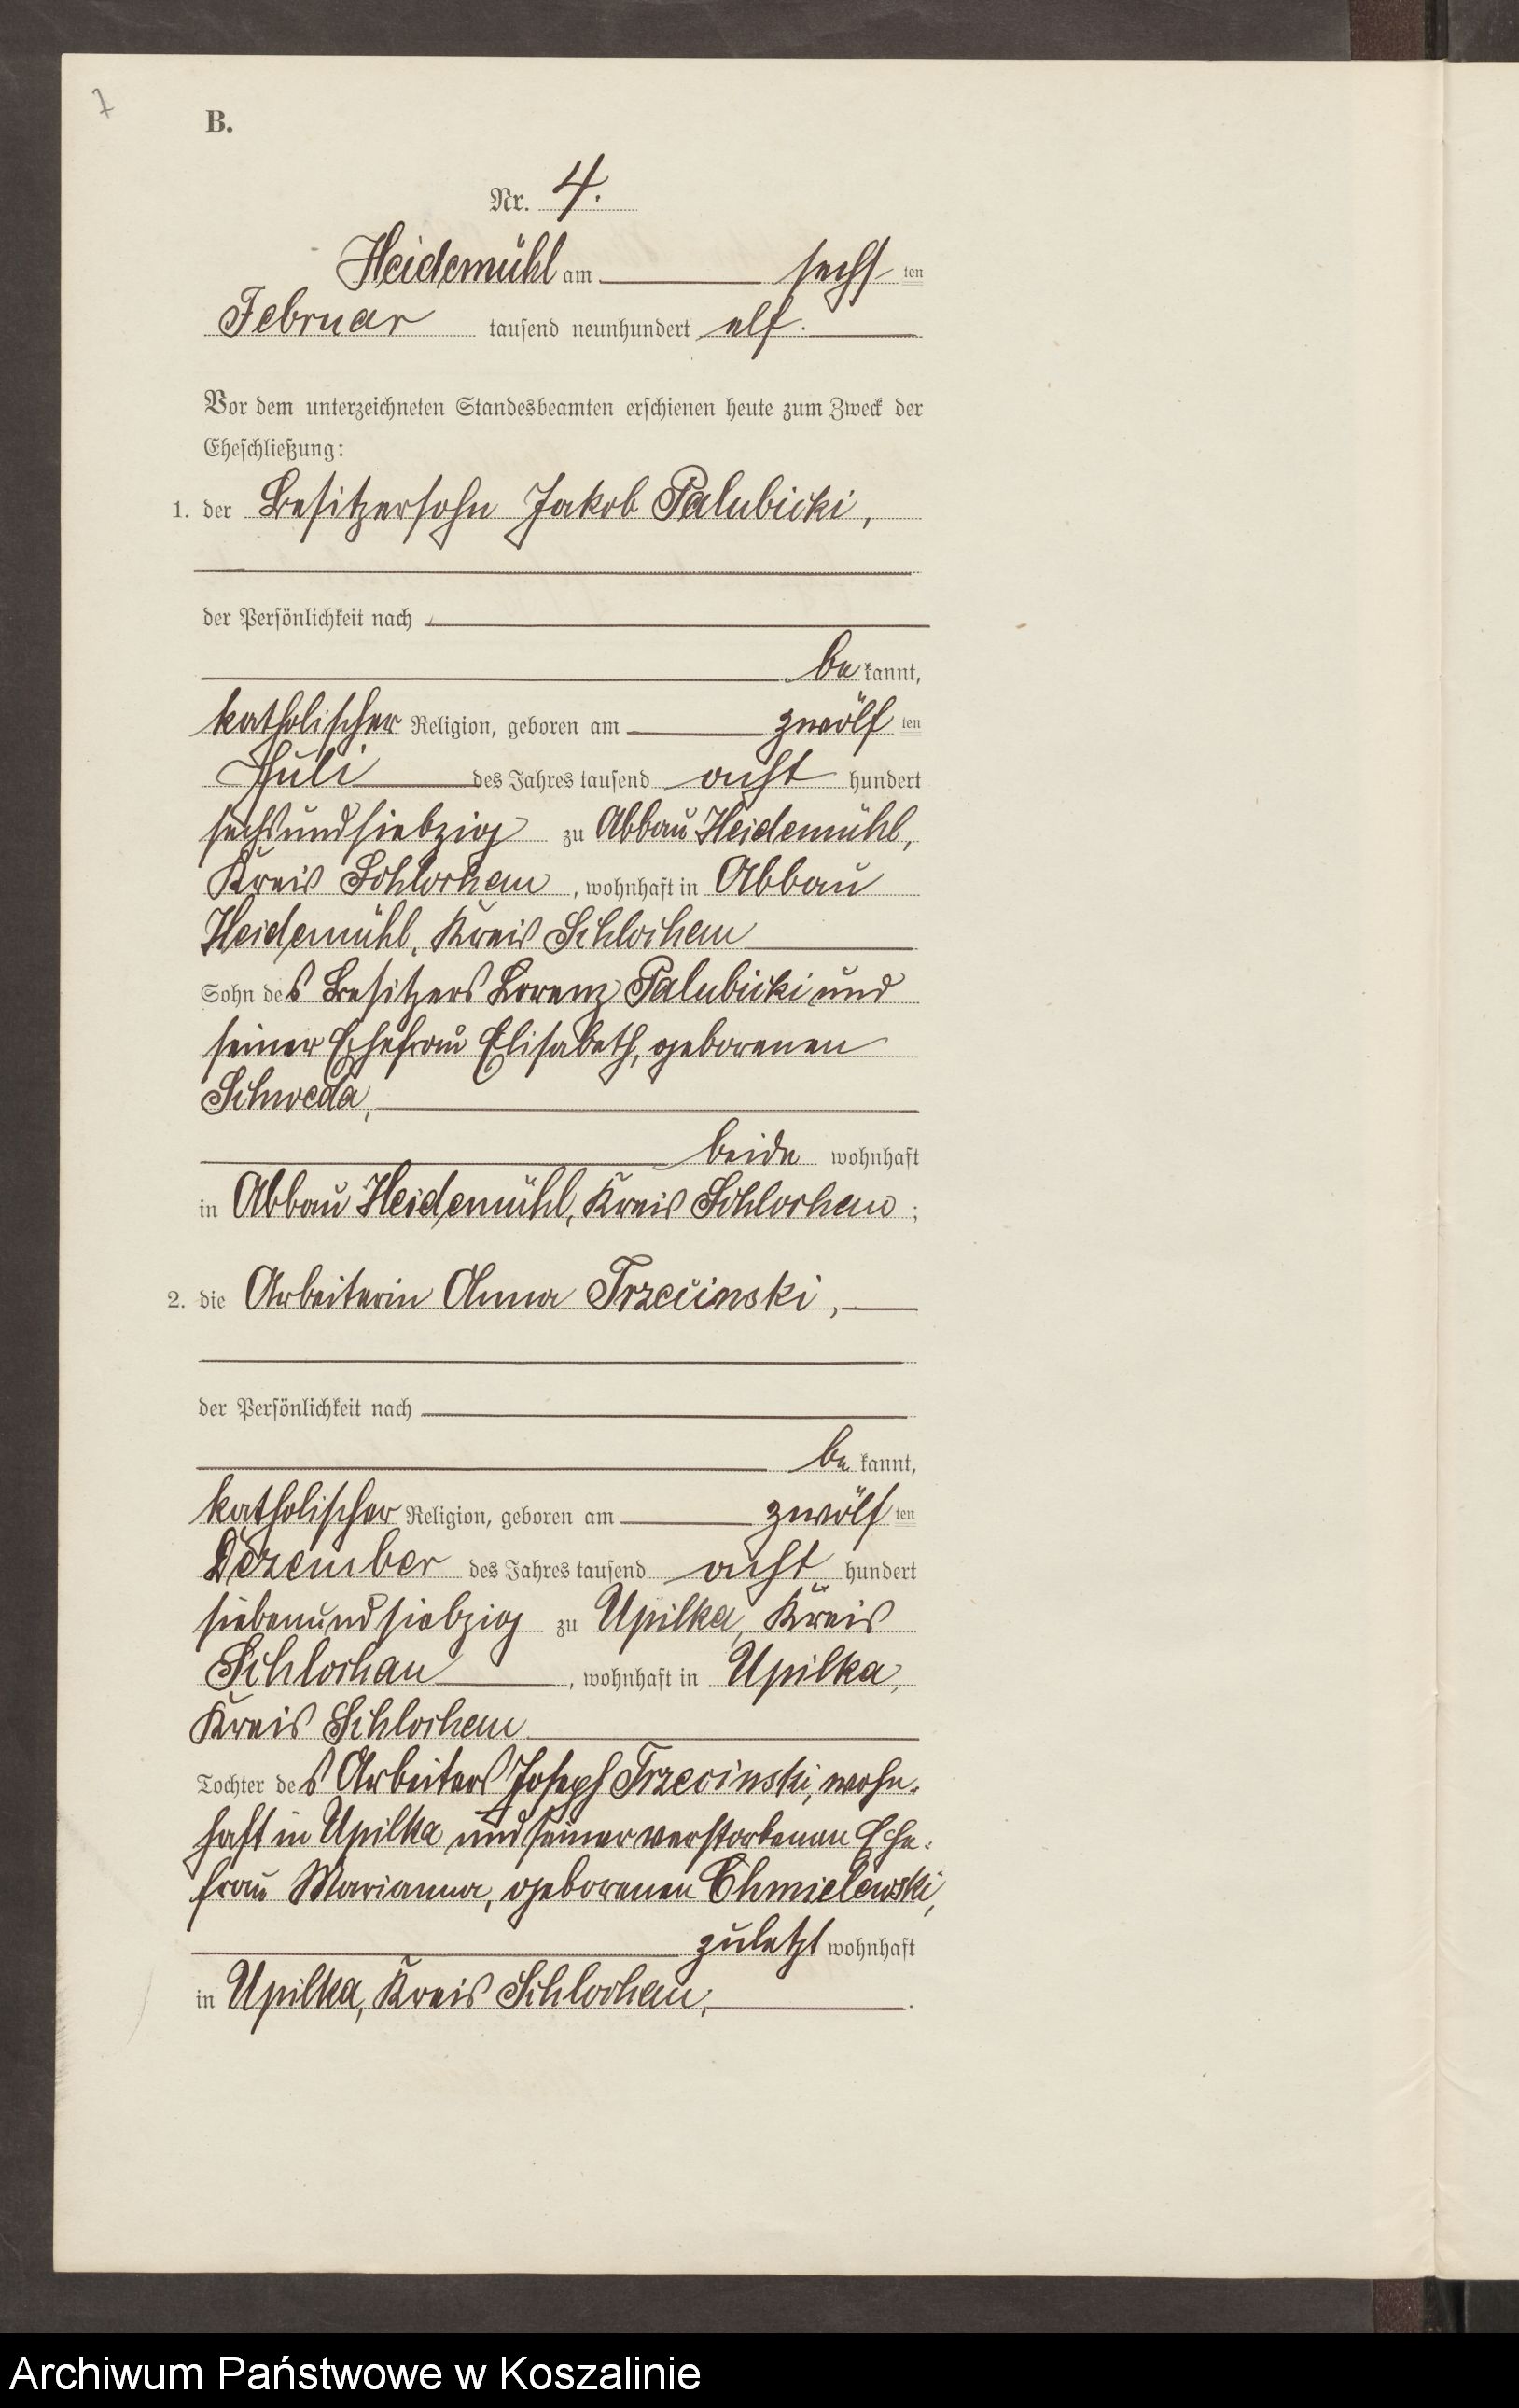 7
B.
Nr. 4.
Heidemühl am sechs ten
Februar tausend neunhundert elf.
Vor dem unterzeichneten Standesbeamten erschienen heute zum Zweck der
Eheschließung:
1. der Besitzersohn Jakob Palubicki,
der Persönlichkeit nach
be kannt,
katholischer Religion, geboren am zwölf ten
Juli des Jahres tausend acht hundert
sechsundsiebzig zu Abbau Heidemühl,
Kreis Schlochau, wohnhaft in Abbau
Heidemühl, Kreis Schlochau
Sohn des Besitzers Lorenz Palubicki und
seiner Ehefrau Elisabeth, geborenen
Schweda,
beide wohnhaft
in Abbau Heidemühl, Kreis Schlochau;
2. die Arbeiterin Anna Trzecinski,
der Persönlichkeit nach
be kannt,
katholischer Religion, geboren am zwölf ten
Dezember des Jahres tausend acht hundert
siebenundsiebzig zu Upilka, Kreis
Schlochau, wohnhaft in Upilka,
Kreis Schlochau
Tochter des Arbeiters Joseph Trzecinski, wohn-
haft in Upilka und seiner verstorbenen Ehe-
frau Marianna, geborenen Chmielewski,
zuletzt wohnhaft
in Upilka, Kreis Schlochau.
Archiwum Państwowe w Koszalinie